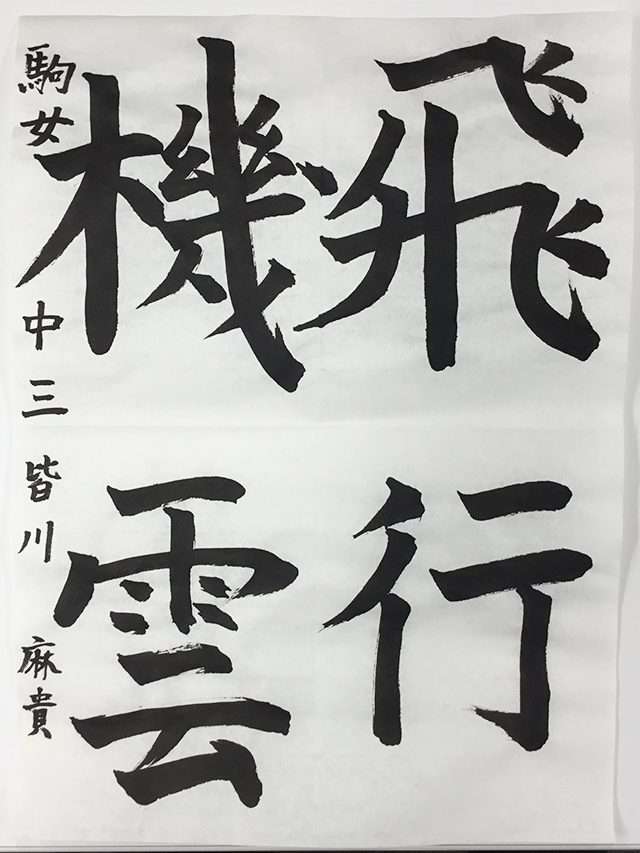 飛行
機雲
駒女 中三 皆川 麻貴